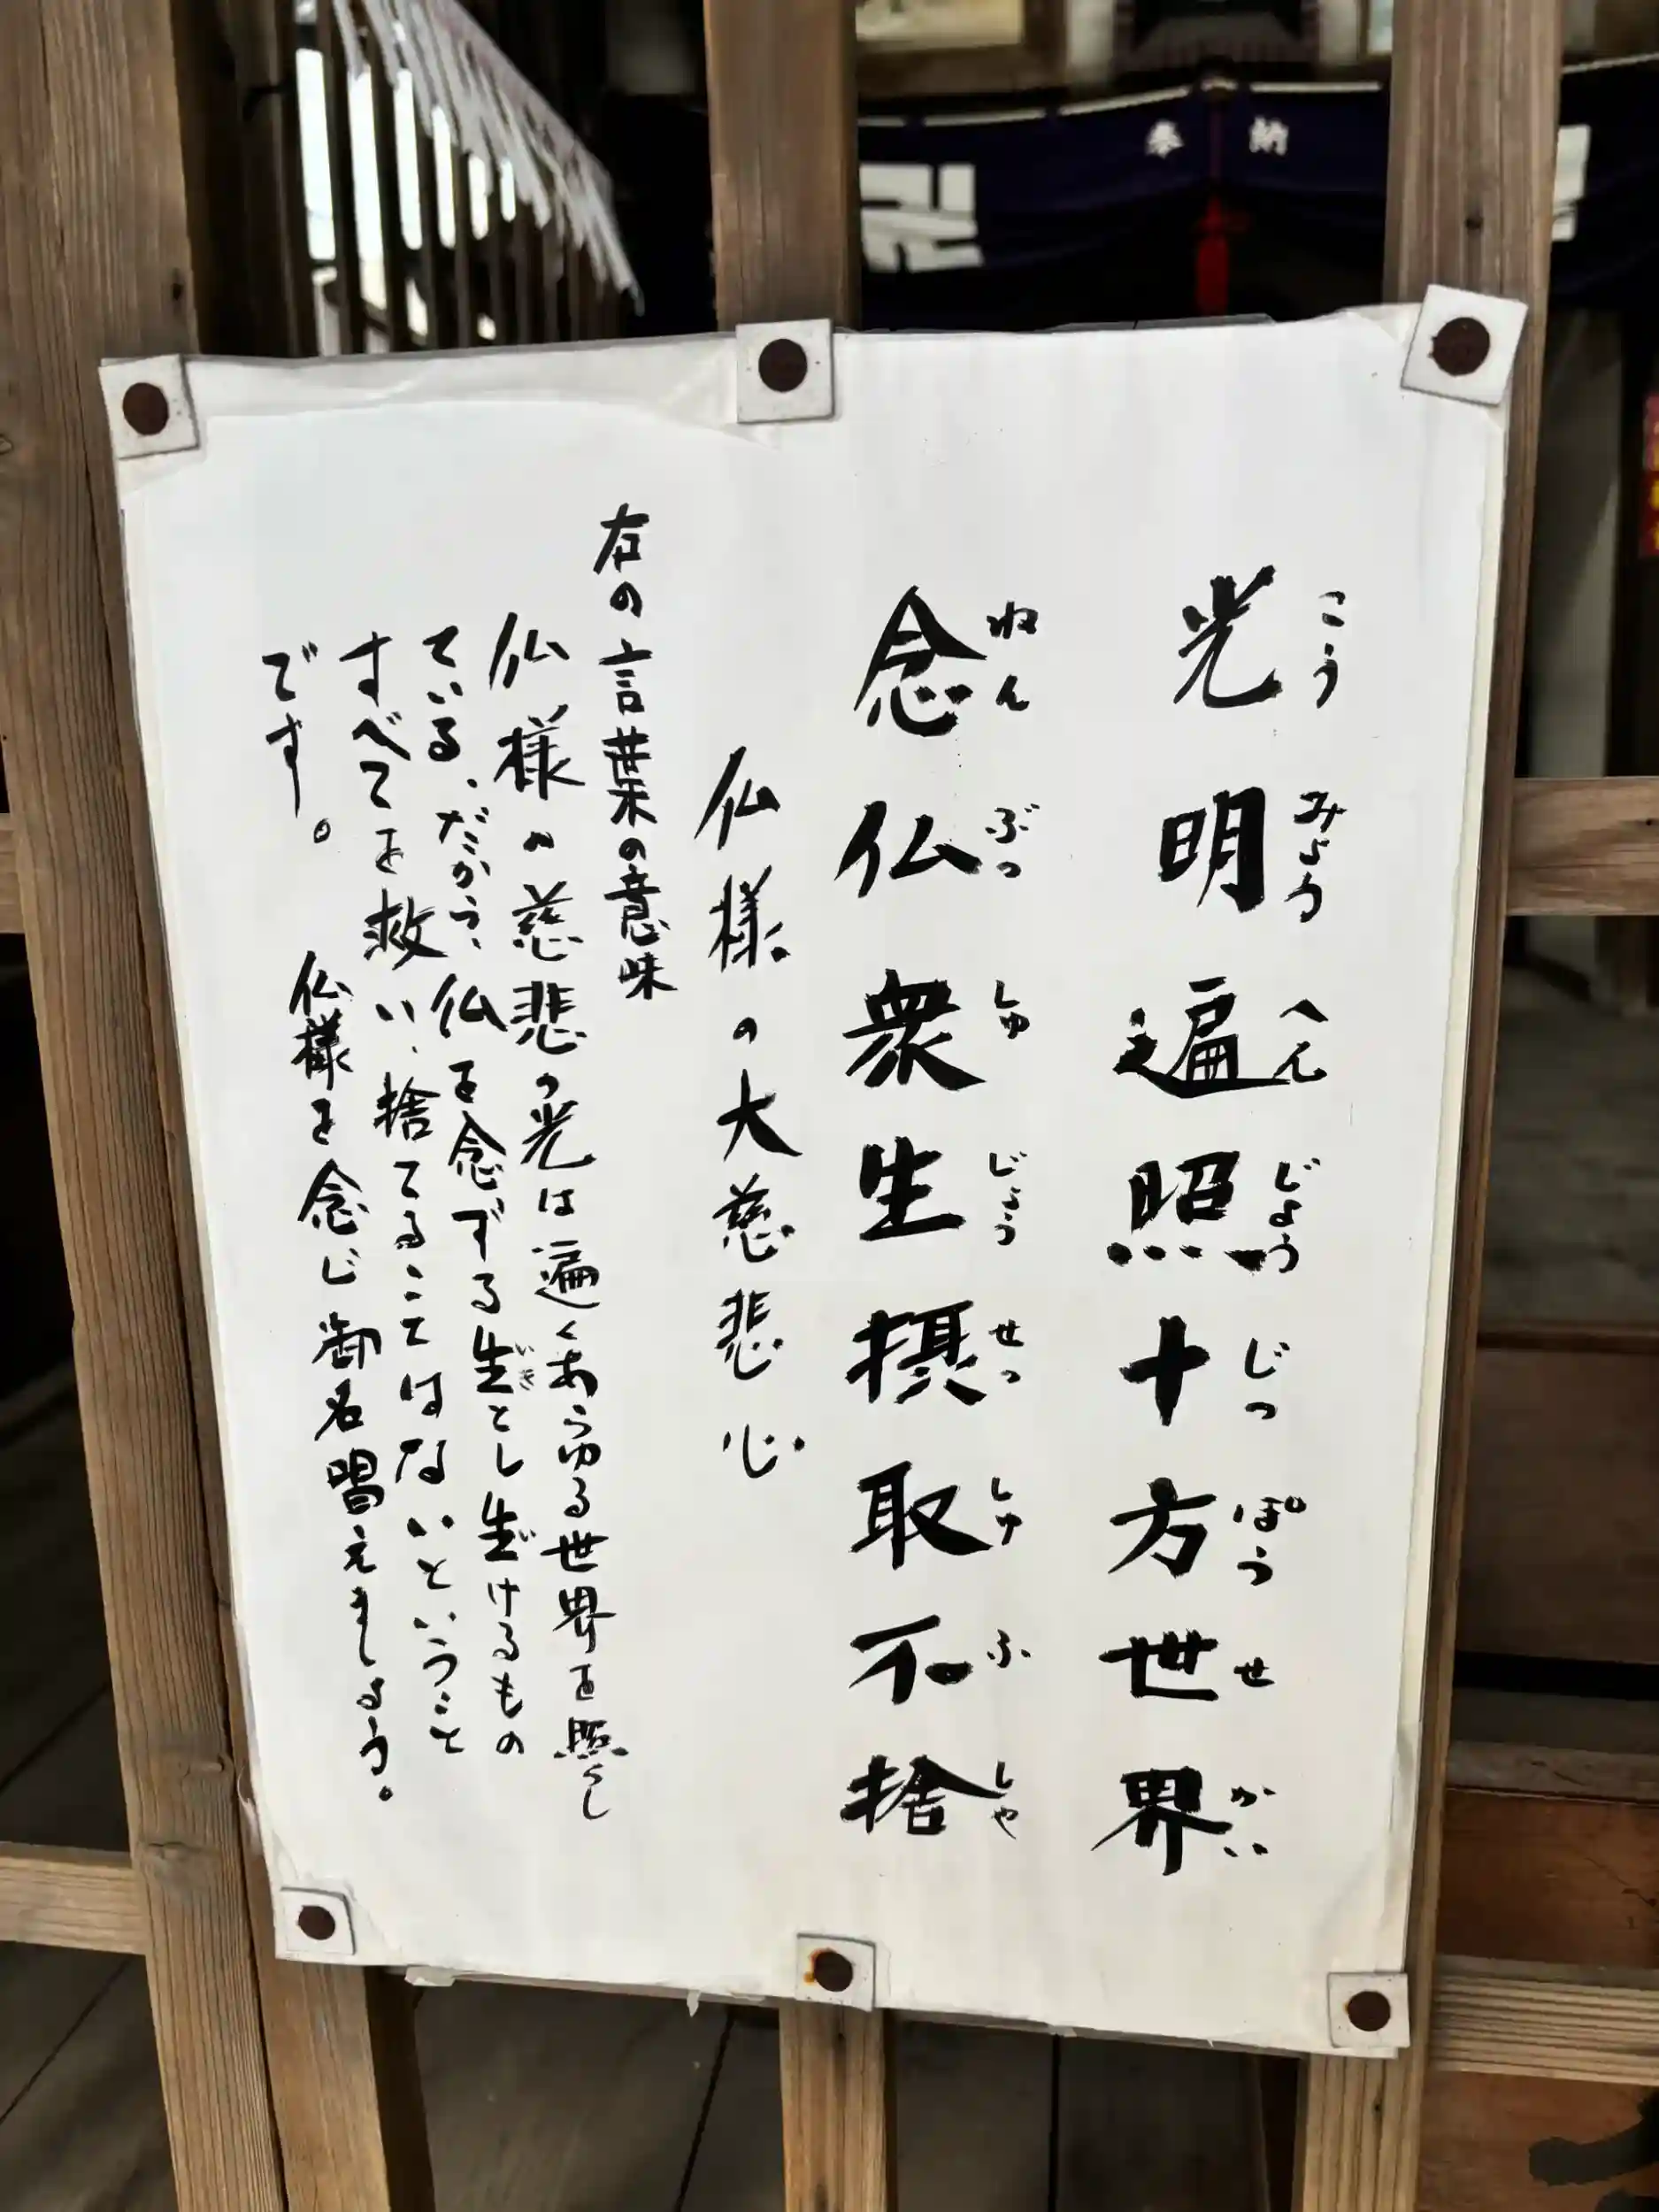 奉納
光明遍照十方世界
こうみょうへんじょうじっぽうせかい
念仏衆生摂取不捨
ねんぶつしゅじょうせっしゅふしゃ
仏様の大慈悲心
右の言葉の意味
仏様の慈悲の光は遍くあらゆる世界を照らし
ている、だから、仏を念ずる生とし生けるもの
いき
すべてを救い、捨てることはないということ
です。 仏様を念じ御名唱えましょう。